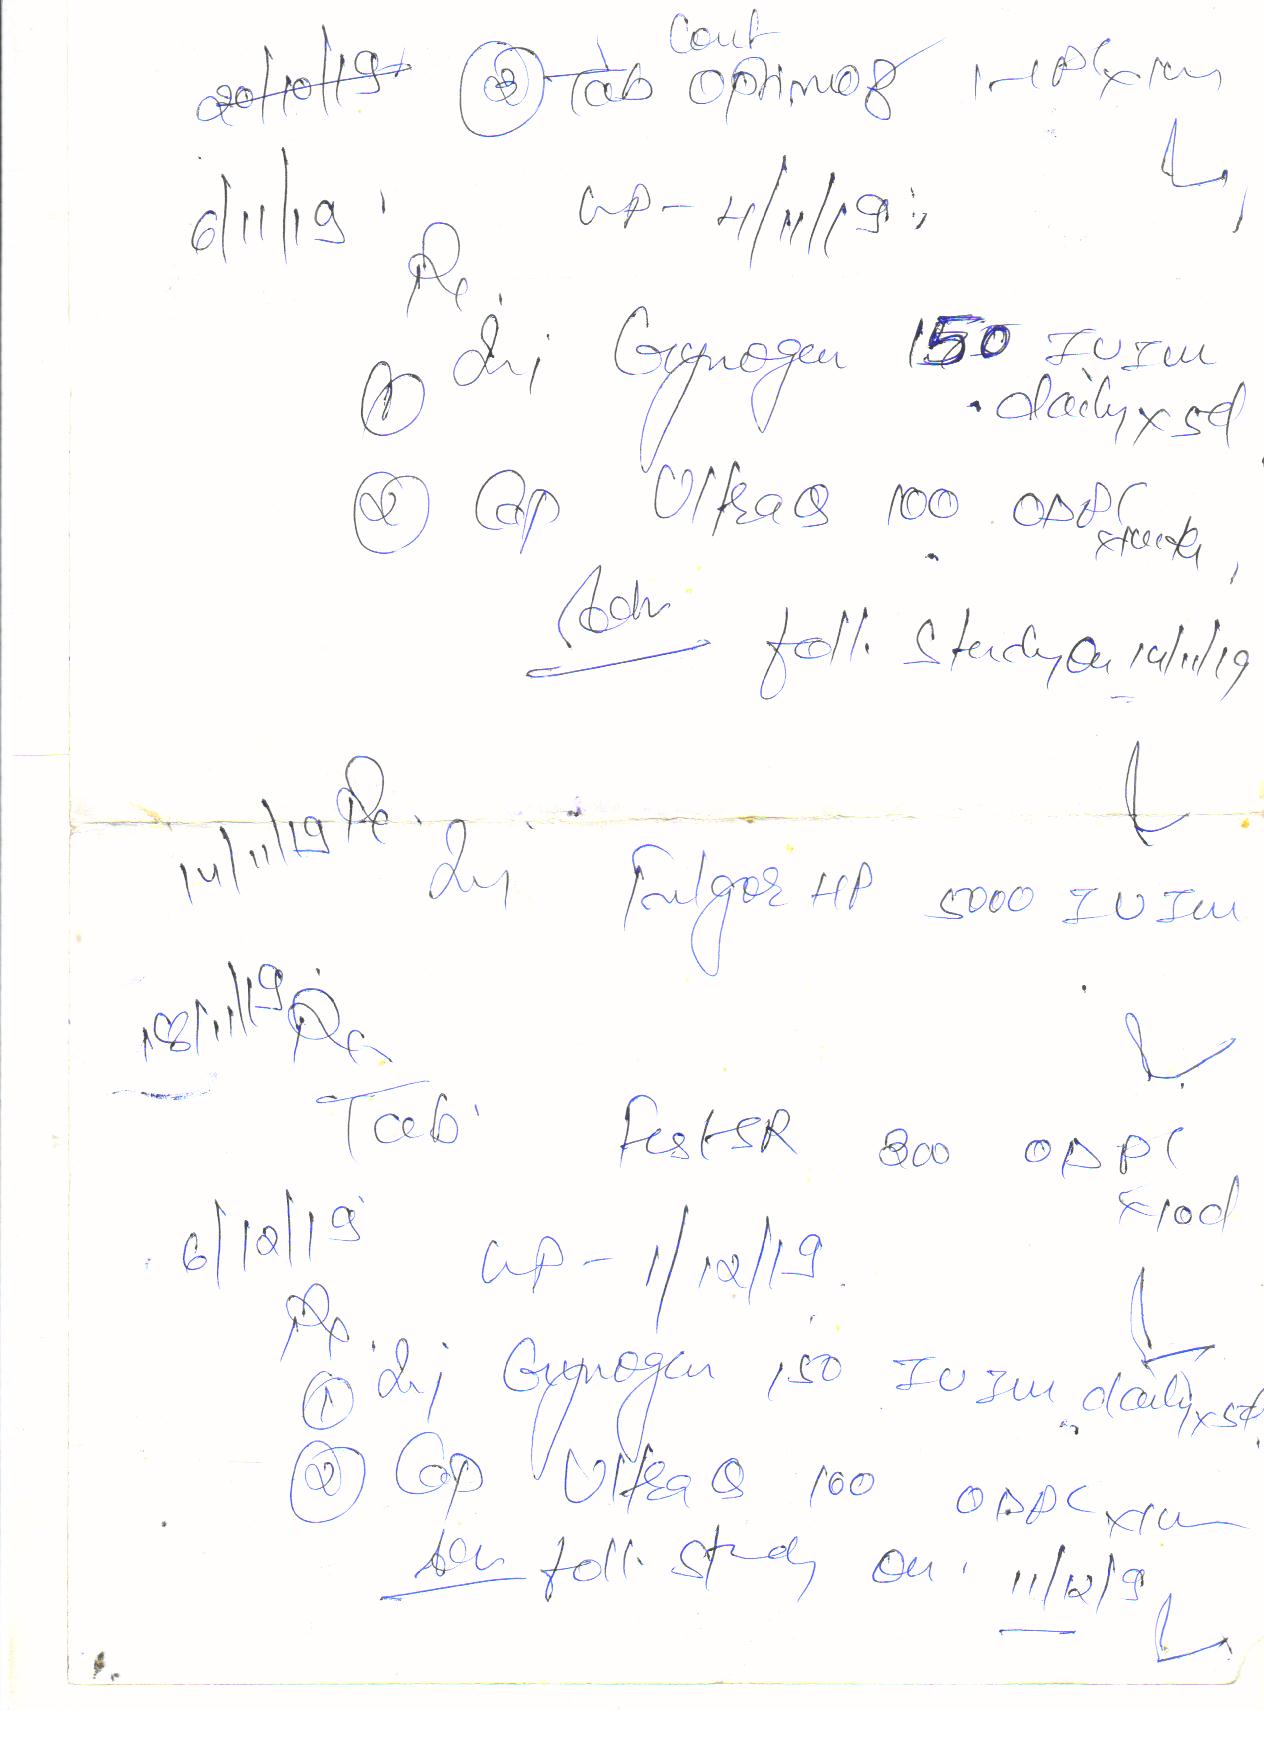 Cont
20/10/19 ② Tab Optinog
6/11/19 LMP - 4/11/19
Rx
① Inj Gynogen 150 IU IM
daily x 5d
② Cap Ultra Q 100 OD PC
Adv foll. Study On 14/11/19
14/11/19 Rx
Inj Fulgor HP 5000 IU IM
18/11/19 Rx
Tab Fest SR 300 OD PC
x 10d
6/12/19 LMP - 1/12/19
Rx
① Inj Gynogen 150 IU IM daily x 5d
② Cap Ultra Q 100 OD PC x 1m
Adv foll. Study On 11/12/19